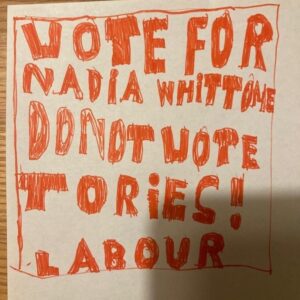 VOTE FOR
NADiA WHiTTOME
DONOT VOTE
TORiES!
LABOUR